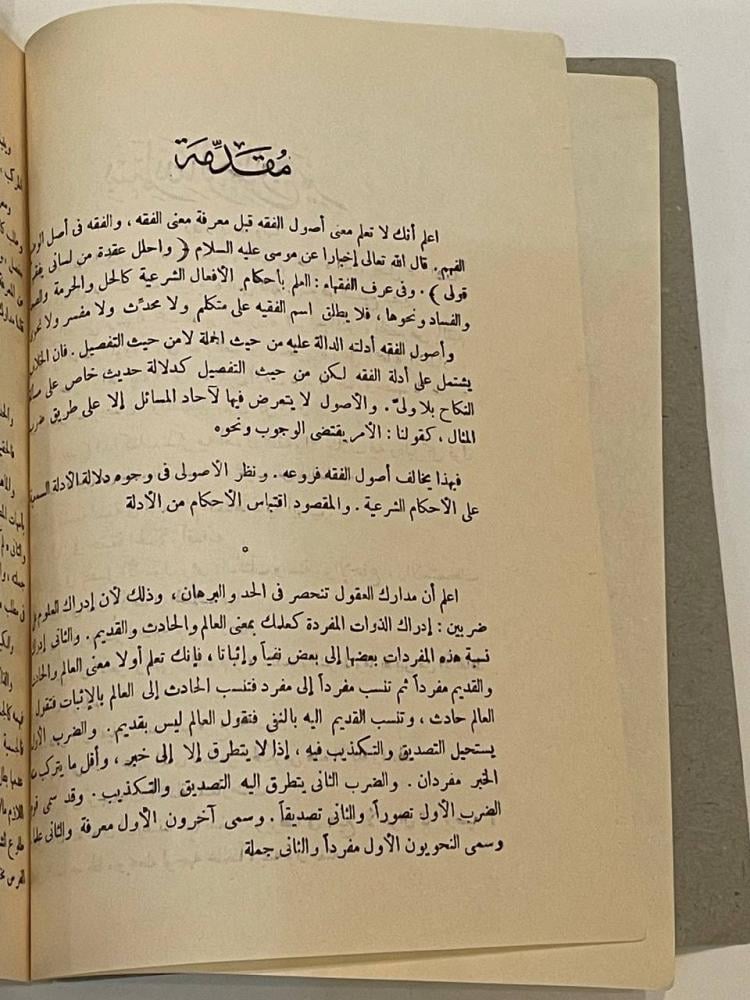 مُقَدِّمَة
اعلم أنك لا تعلم معنى أصول الفقه قبل معرفة معنى الفقه ، والفقه فى أصل
الفهم . قال الله تعالى إخبارا عن موسى عليه السلام ﴿ واحلل عقدة من لسانى
قولى ﴾ . وفى عرف الفقهاء : العلم بأحكام الأفعال الشرعية كالحل والحرمة
والفساد ونحوها ، فلا يطلق اسم الفقيه على متكلم ولا محدّث ولا مفسر ولا نحوى
وأصول الفقه أدلته الدالة عليه من حيث الجملة لامن حيث التفصيل . فان
يشتمل على أدلة الفقه لكن من حيث التفصيل كدلالة حديث خاص على
النكاح بلا ولىّ . والأصول لا يتعرض فيها لآحاد المسائل إلا على طريق ضرب
المثال ، كقولنا : الأمر يقتضى الوجوب ونحوه
فبهذا يخالف أصول الفقه فروعه . ونظر الأصولى فى وجوه دلالة الأدلة السمعية
على الأحكام الشرعية . والمقصود اقتباس الأحكام من الأدلة
اعلم أن مدارك العقول تنحصر فى الحد والبرهان ، وذلك لأن إدراك العلوم
ضربين : إدراك الذوات المفردة كعلمك بمعنى العالم والحادث والقديم . والثانى إدراك
نسبة هذه المفردات بعضها إلى بعض نفياً وإثباتا ، فإنك تعلم أولا معنى العالم والحادث
والقديم مفرداً ثم تنسب مفرداً إلى مفرد فتنسب الحادث إلى العالم بالإثبات فتقول
العالم حادث ، وتنسب القديم اليه بالنفى فتقول العالم ليس بقديم . والضرب الأول
يستحيل التصديق والتكذيب فيه ، إذ لا يتطرق إلا إلى خبر ، وأقل ما يتركب
الخبر مفردان . والضرب الثانى يتطرق اليه التصديق والتكذيب . وقد سمى قوم
الضرب الأول تصوراً والثانى تصديقاً . وسمى آخرون الأول معرفة والثانى علما
وسمى النحويون الأول مفرداً والثانى جملة